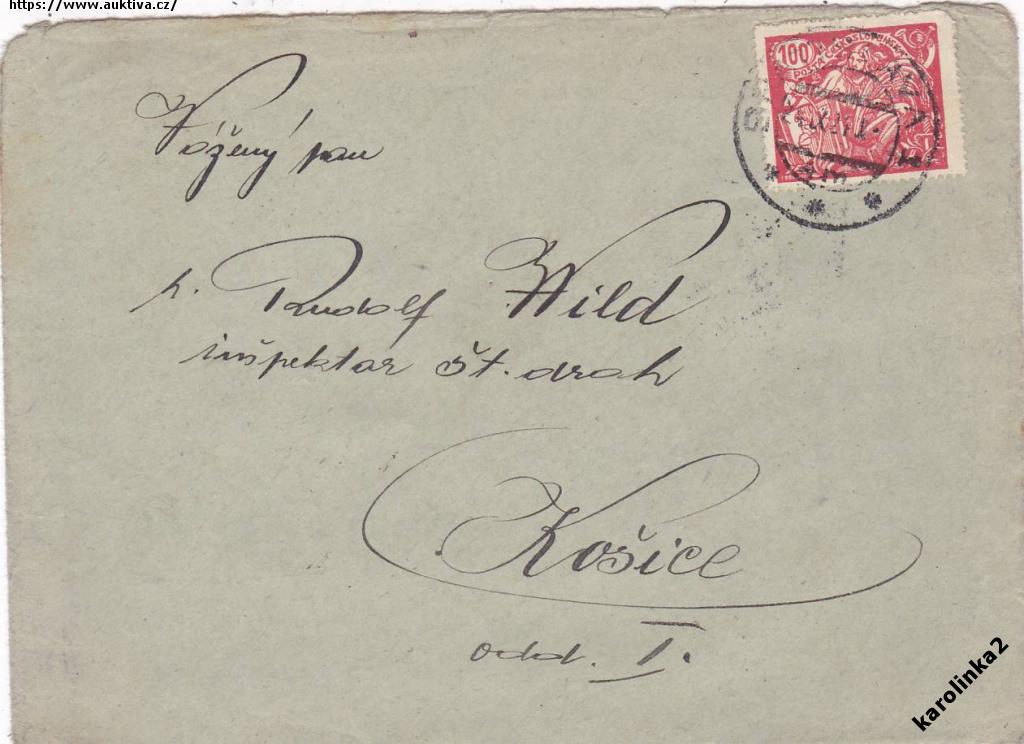 https://www.auktiva.cz/
100
POŠTA ČESKOSLOVENSKÁ
Vážený pan
p. Rudolf Wild
inšpektor št. drah
Košice
odd. I.
karolinka2